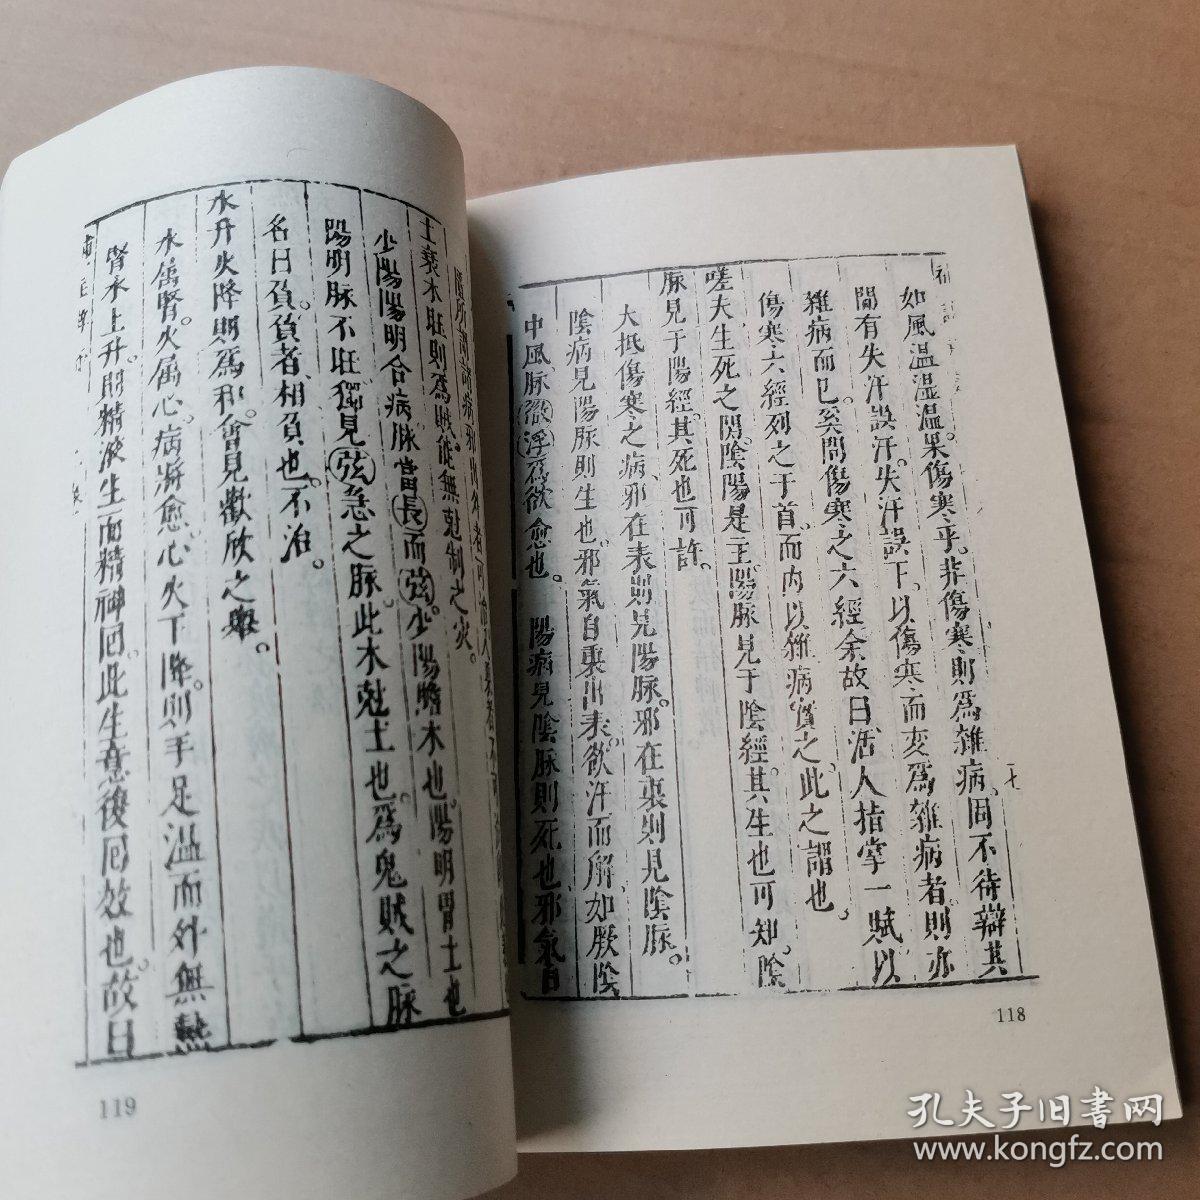 如風温湿温果傷寒乎。非傷寒則爲雜病、固不待辯其
間有失汗誤汗。失汗誤下。以傷寒而变爲雜病者。則亦
雜病而已。奚問傷寒之六經余故曰活人指掌一賦以
傷寒六經列之于首。而内以雜病實之。此之謂也。
嗟夫生死之間。陰陽是主。陽脉見于陰經。其生也可知。陰
脉見于陽經。其死也可許。
大抵傷寒之病、邪在表則見陽脉。邪在裏則見陰脉。
陰病見陽脉則生也。邪氣自裏出表。欲汗而解、如厥陰
中風脉微浮爲欲愈也。 陽病見陰脉則死也、邪氣自
118
土衰水旺則爲賊能無尅制之灾。
少陽陽明合病。脉當長而弦。少陽膽木也。陽明胃土也
陽明脉不旺。獨見弦急之脉。此木尅土也。爲鬼賊之脉
名曰負。負者、相負也。不治。
水升火降。則爲和會見歡欣之舉。
水属腎。火属心。病将愈、心火下降。則手足温而外無熱
腎水上升。則精液生而精神回。此生意復囘效也。故曰
119
孔夫子旧書网
www.kongfz.com